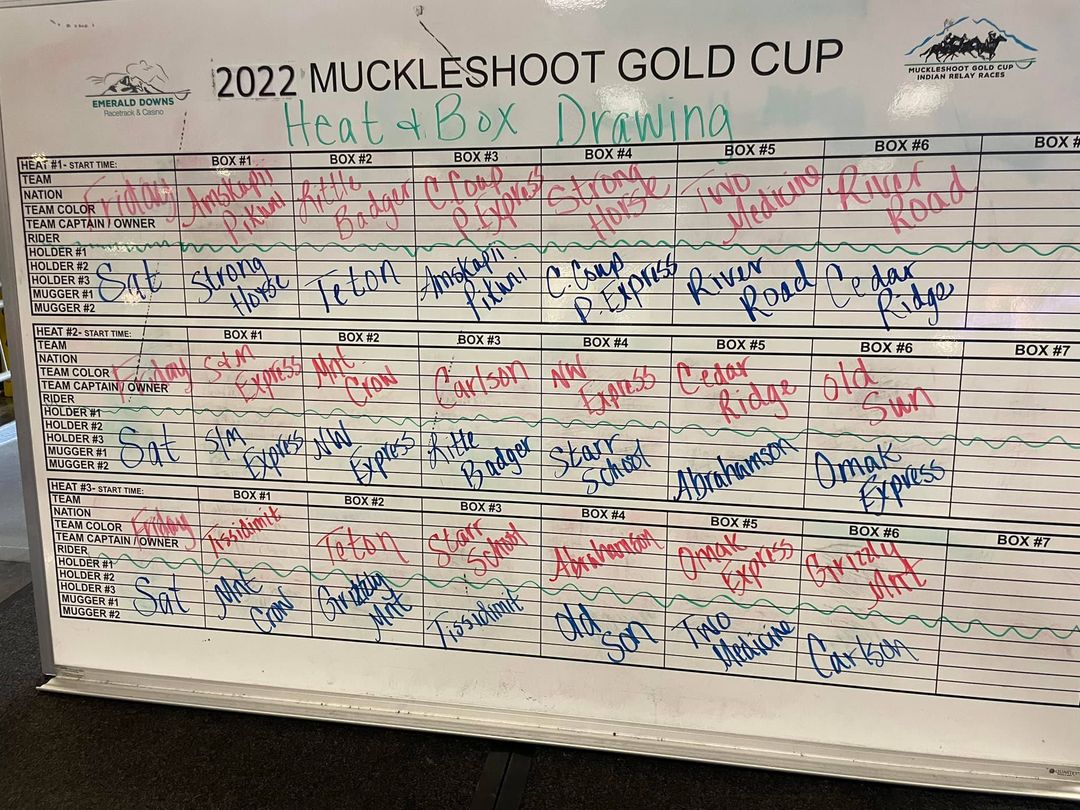 2022 MUCKLESHOOT GOLD CUP
EMERALD DOWNS
Racetrack & Casino
MUCKLESHOOT GOLD CUP
INDIAN RELAY RACES
Heat & Box Drawing
HEAT #1- START TIME: BOX #1 BOX #2 BOX #3 BOX #4 BOX #5 BOX #6 BOX #
TEAM
NATION
TEAM COLOR
TEAM CAPTAIN / OWNER
RIDER
HOLDER #1
HOLDER #2
HOLDER #3
MUGGER #1
MUGGER #2
Friday Amskapii Little C. Coup Strong Two River
Pikuni Badger P. Express Horse Medicine Road
Sat Strong Teton Amskapii C. Coup River Cedar
Horse Pikuni P. Express Road Ridge
HEAT #2- START TIME: BOX #1 BOX #2 BOX #3 BOX #4 BOX #5 BOX #6 BOX #7
TEAM
NATION
TEAM COLOR
TEAM CAPTAIN / OWNER
RIDER
HOLDER #1
HOLDER #2
HOLDER #3
MUGGER #1
MUGGER #2
Friday S&M Mnt Carlson NW Cedar Old
Express Crow Express Ridge Sun
Sat S/M NW Little Starr Abrahamson Omak
Express Express Badger School Express
HEAT #3- START TIME: BOX #1 BOX #2 BOX #3 BOX #4 BOX #5 BOX #6 BOX #7
TEAM
NATION
TEAM COLOR
TEAM CAPTAIN / OWNER
RIDER
HOLDER #1
HOLDER #2
HOLDER #3
MUGGER #1
MUGGER #2
Friday Tissidimit Teton Starr Abrahamson Omak Grizzly
School Express Mnt
Sat Mnt Grizzly Tissidimit Old Two Carlson
Crow Mnt Son Medicine